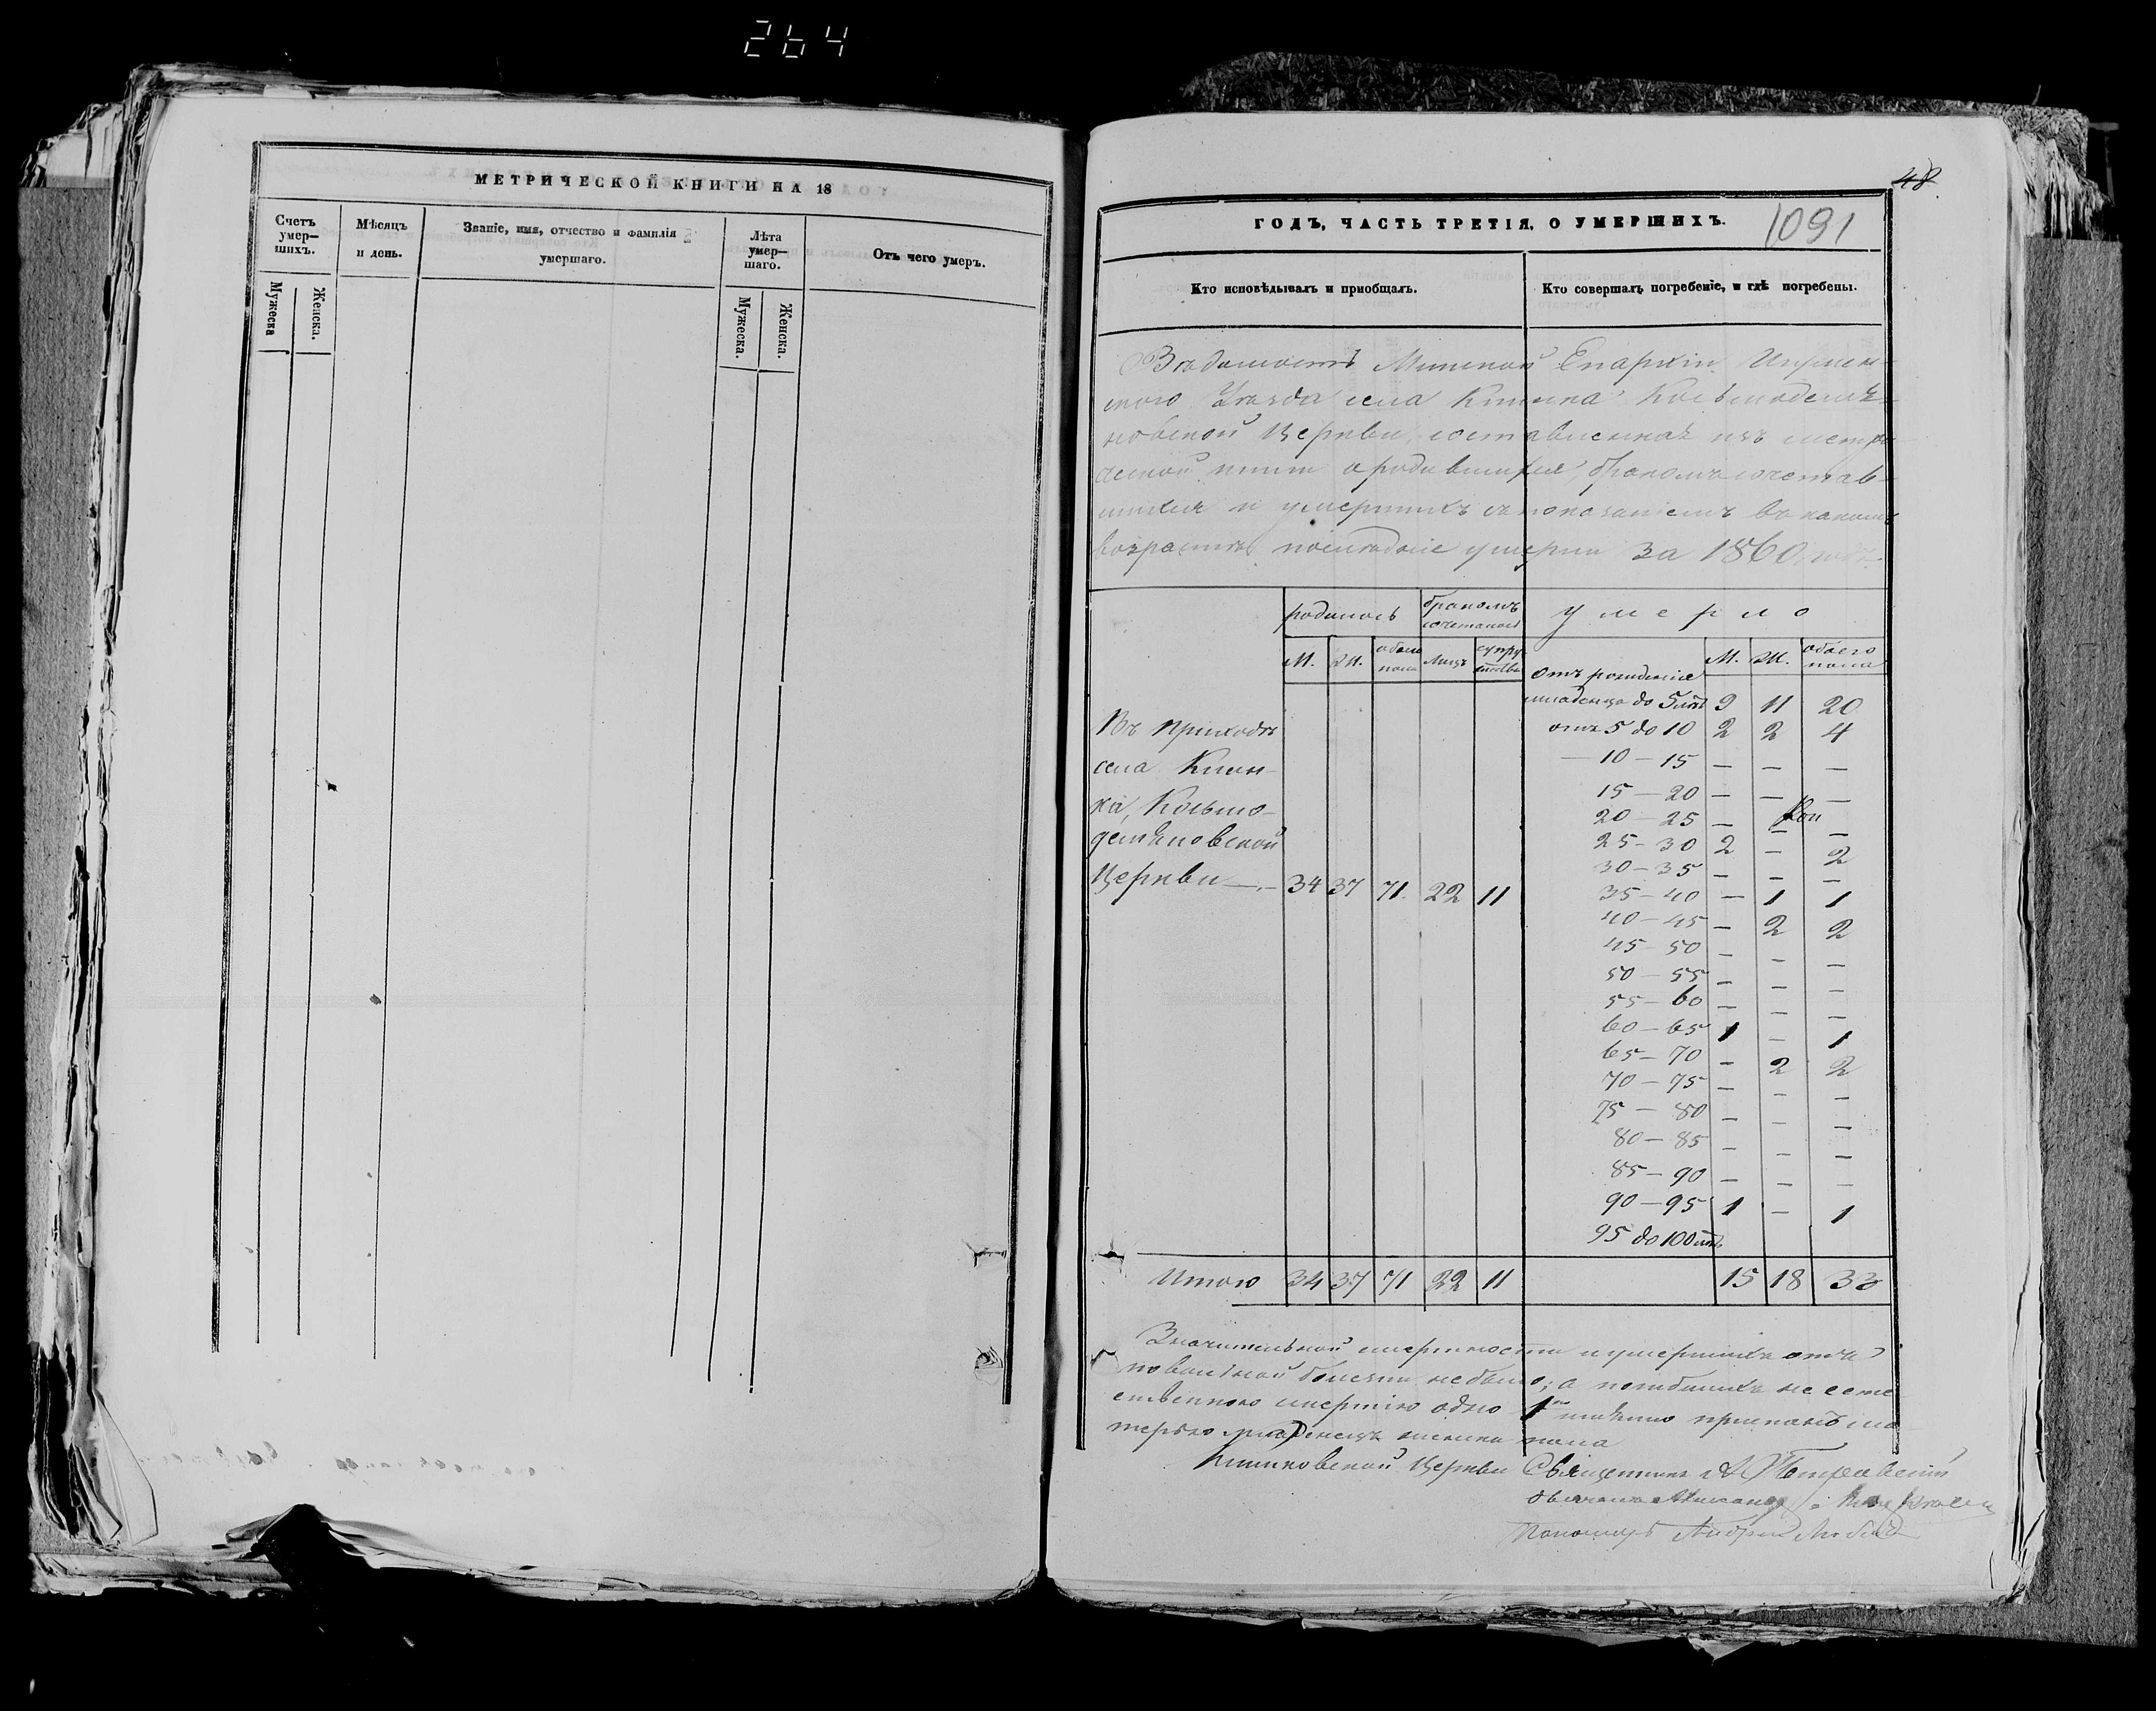 264
МЕТРИЧЕСКОЙ КНИГИ НА 18
Счетъ умер—шихъ.
Мужеска
Женска.
Мѣсяцъ и день.
Званіе, имя, отчество и фамилія умершаго.
Лѣта умер—шаго.
Мужеска.
Женска.
Отъ чего умеръ.
48
ГОДЪ, ЧАСТЬ ТРЕТІЯ, О УМЕРШИХЪ.
1091
Кто исповѣдывалъ и пріобщалъ.
Кто совершалъ погребеніе, и гдѣ погребены.
Вѣдомость Минской Епархіи Игумен-
скаго Уѣзда села Косьмодемья-
новской Церкви, составленная изъ метри-
ческой книги о родившихся, бракомъ сочетав-
шихся и умершихъ съ показаніемъ въ какомъ
возрастѣ послѣдніе умерли за 1860 годъ
родилось бракомъ сочеталось умерло
М. Ж. обоего пола Лицъ супружествъ
отъ рожденія М. Ж. обоего пола
младенца до 5 лѣтъ 9 11 20
отъ 5 до 10 2 2 4
— 10 — 15 — — —
15 — 20 — — —
20 — 25 — — —
25 — 30 2 — 2
30 — 35 — — —
35 — 40 — 1 1
40 — 45 — 2 2
45 — 50 — — —
50 — 55 — — —
55 — 60 — — —
60 — 65 1 — 1
65 — 70 — 2 2
70 — 75 — — —
75 — 80 — — —
80 — 85 — — —
85 — 90 — — —
90 — 95 1 — 1
95 до 100 лѣтъ
Въ приходѣ
села
Косьмо-
демьяновской
Церкви — 34 37 71 22 11
Итого 34 37 71 22 11 15 18 33
Значительной смертности и умершихъ отъ
повальной болезни не было; а погибшихъ не есте-
ственною смертію
терью младенецъ пола
Церкви Священникъ
Андрей